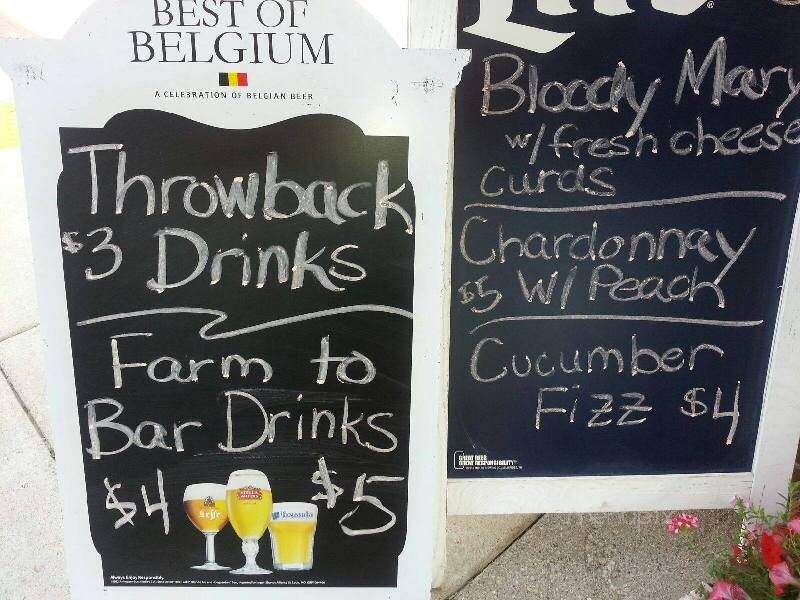 BEST OF
BELGIUM
A CELEBRATION OF BELGIAN BEER
Throwback
$3 Drinks
Farm to
Bar Drinks
$4 $5
Leffe
STELLA
ARTOIS
Hoegaarden
Always Enjoy Responsibly.
Lite
Bloody Mary
w/fresh cheese
curds
Chardonnay
$5 W/ Peach
Cucumber
Fizz $4
GREAT BEER
GREAT RESPONSIBILITY